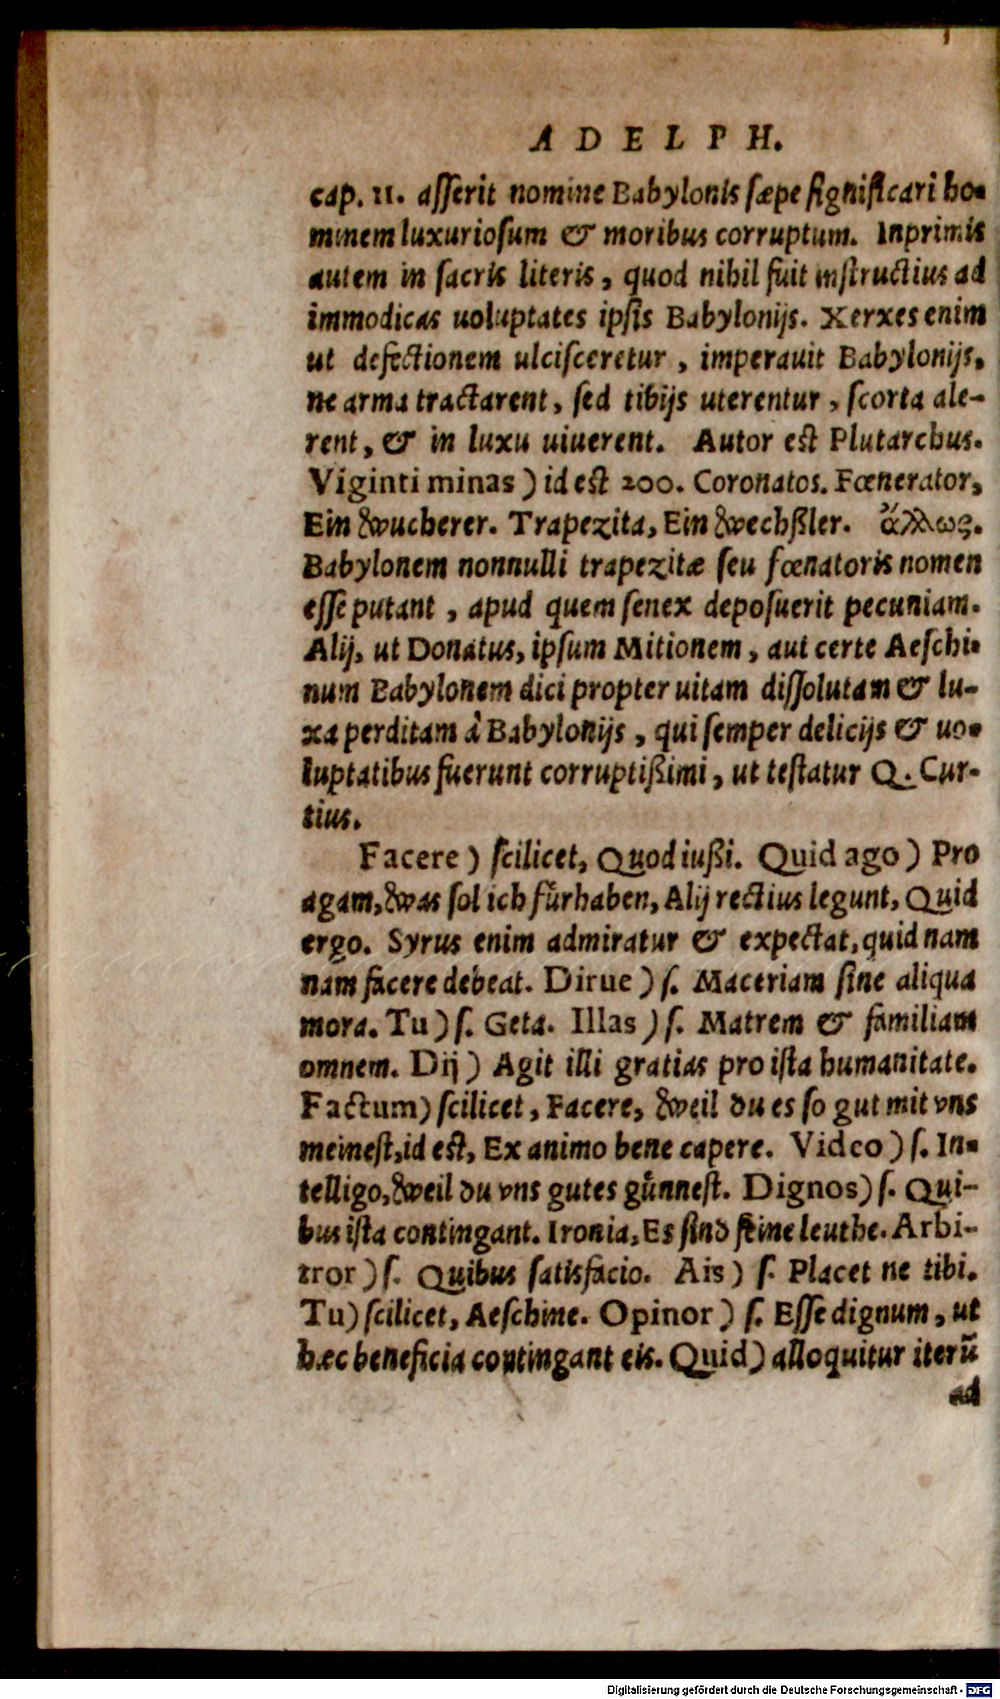 ADELPH.
cap. 11. asserit nomine Babylonis sæpe significari ho-
minem luxuriosum & moribus corruptum. Inprimis
autem in sacris literis, quod nihil fuit instructius ad
immodicas uoluptates ipsis Babylonijs. Xerxes enim
ut defectionem ulcisceretur, imperauit Babylonijs,
ne arma tractarent, sed tibijs uterentur, scorta ale-
rent, & in luxu uiuerent. Autor est Plutarchus.
Viginti minas) id est 200. Coronatos. Fœnerator,
Ein wucherer. Trapezita, Ein wechßler. ἄλλως.
Babylonem nonnulli trapezitæ seu fœnatoris nomen
esse putant, apud quem senex deposuerit pecuniam.
Alij, ut Donatus, ipsum Mitionem, aut certe Aeschi-
num Babylonem dici propter uitam dissolutam & lu-
xa perditam à Babylonijs, qui semper delicijs & uo-
luptatibus fuerunt corruptißimi, ut testatur Q. Cur-
tius.
Facere) scilicet, Quod iußi. Quid ago) Pro
agam, was sol ich fürhaben, Alij rectius legunt, Quid
ergo. Syrus enim admiratur & expectat, quid nam
nam facere debeat. Dirue) s. Maceriam sine aliqua
mora. Tu) s. Geta. Illas) s. Matrem & familiam
omnem. Dij) Agit illi gratias pro ista humanitate.
Factum) scilicet, Facere, weil du es so gut mit vns
meinest, id est, Ex animo bene capere. Video) s. In-
telligo, weil du vns gutes günnest. Dignos) s. Qui-
bus ista contingant. Ironia, Es sind feine leuthe. Arbi-
tror) s. Quibus satisfacio. Ais) s. Placet ne tibi.
Tu) scilicet, Aeschine. Opinor) s. Esse dignum, ut
hæc beneficia contingant eis. Quid) alloquitur iterũ
ad
Digitalisierung gefördert durch die Deutsche Forschungsgemeinschaft - DFG